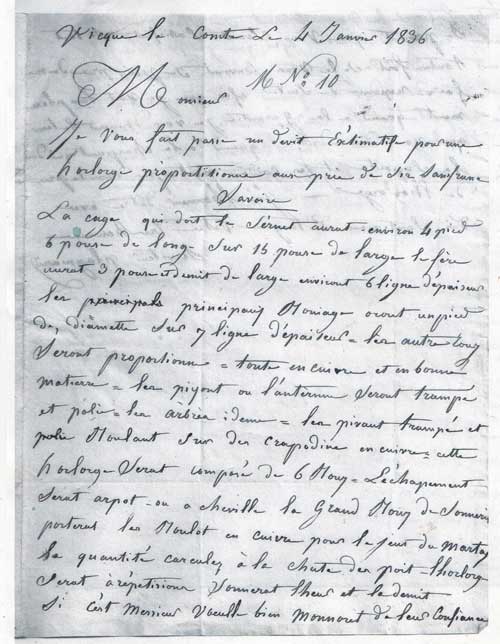 Vicque le Comte Le 4 Janvier 1836
M N° 10
Monsieur
Je vous fait passe un devit Estimatif pour une
horloge proportionne aux prie de Six Sanfranc
Savoire
La cage qui doit le Sérnet aurat environ 4 pied
6 pouse de long Sur 15 pouse de large le fère
aurat 3 pouse et demit de large environt 6 ligne dépaiseur
les principals principaux Rouage oront un pied
de diamette Sur 7 ligne d'épaiseur = les autre
Seront proportionne = toute en cuivre et en bonne
matierre = les piyont ou l'anternne Seront trampé
et polie = les arbres ideme = les pivaut trampé et
polie Roulant Sur des crapodine en cuivre = cette
horloge Serat composé de 6 Rouy = Léchapement
Serat arpot ou a cheville la Grand Rouy de Sonnerie
porterat les Roulot en cuivre pour le jeut du Martau
la quantité carculez à la chute des poit = lhorloge
Serat à répetisions Sonnerat lheur et la demit
Si c'est Messieur Voeulle bien Monnoret de leur Confiance